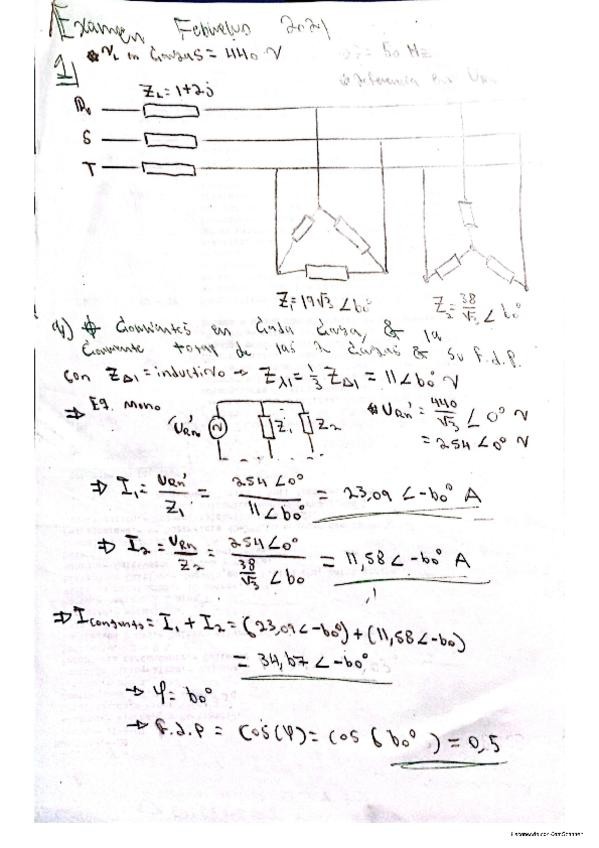 Examen Febrero 2021
* VL in cargas = 440 V f = 50 Hz
1) * Referencia en URn
ZL = 1+2j
R
S
T
Z1 = 19√3 ∠60° Z2 = 38/√3 ∠60°
a) Corrientes en cada carga, & la
corriente total de las 2 cargas & su f.d.p.
con ZΔ1 = inductivo → Zλ1 = 1/3 ZΔ1 = 11∠60° V
⇒ Eq. Mono URn' Z1 Z2 * URn' = 440/√3 ∠0° V
= 254 ∠0° V
⇒ I1 = URn'/Z1 = 254∠0°/11∠60° = 23,09 ∠-60° A
⇒ I2 = URn/Z2 = 254∠0°/(38/√3 ∠60) = 11,58∠-60° A
⇒ Iconjunto = I1 + I2 = (23,09∠-60°) + (11,58∠-60)
= 34,67 ∠-60°
→ φ = 60°
→ F.d.P = cos(φ) = cos(60°) = 0,5
Escaneado con CamScanner